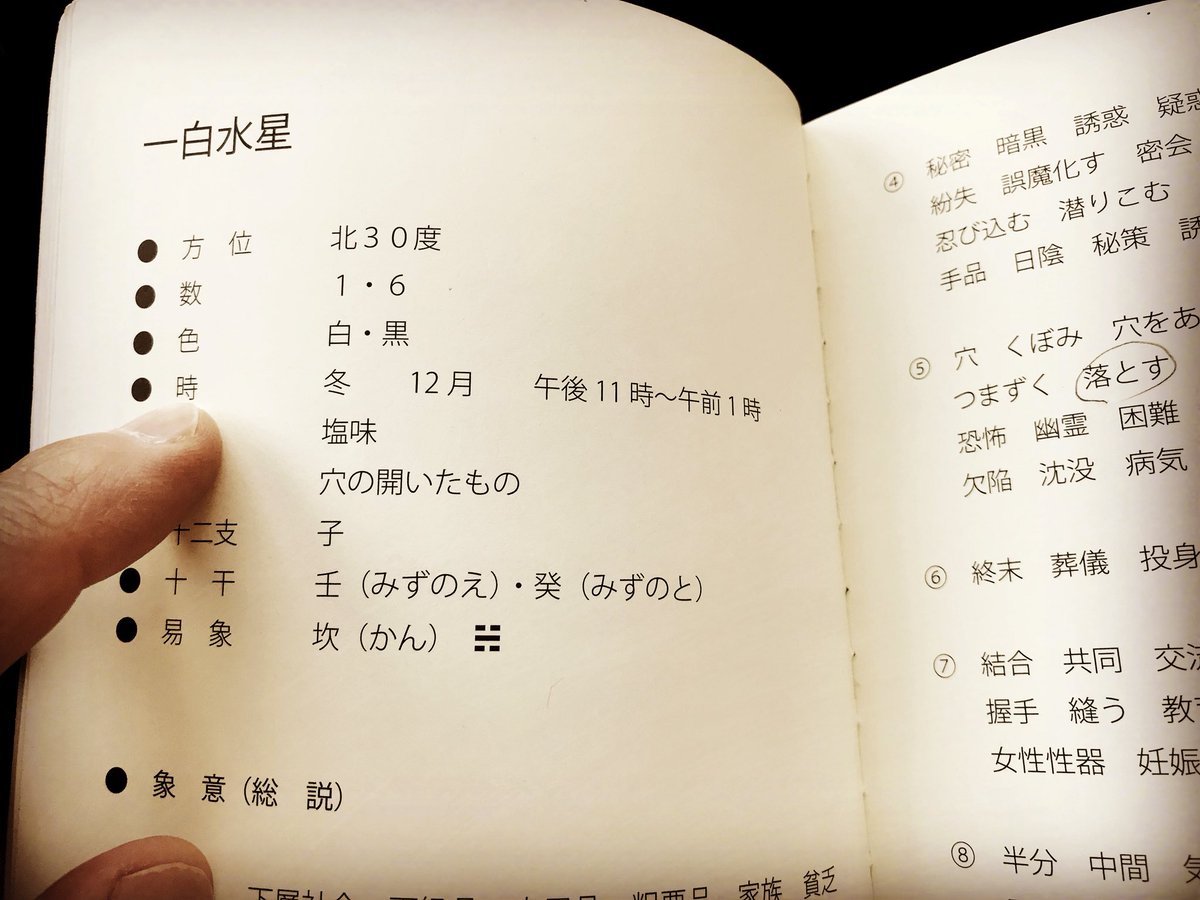 一白水星
● 方 位 北３０度
● 数 １・６
● 色 白・黒
● 時 冬 12月 午後11時～午前1時
塩味
穴の開いたもの
十二支 子
● 十 干 壬（みずのえ）・癸（みずのと）
● 易 象 坎（かん） ☵
● 象 意（総 説）
家族 貧乏
④ 秘密 暗黒 誘惑 疑惑
紛失 誤魔化す 密会
忍び込む 潜りこむ
手品 日陰 秘策
⑤ 穴 くぼみ 穴をあ
つまずく 落とす
恐怖 幽霊 困難
欠陥 沈没 病気
⑥ 終末 葬儀 投身
⑦ 結合 共同 交流
握手 縫う 教
女性性器 妊娠
⑧ 半分 中間